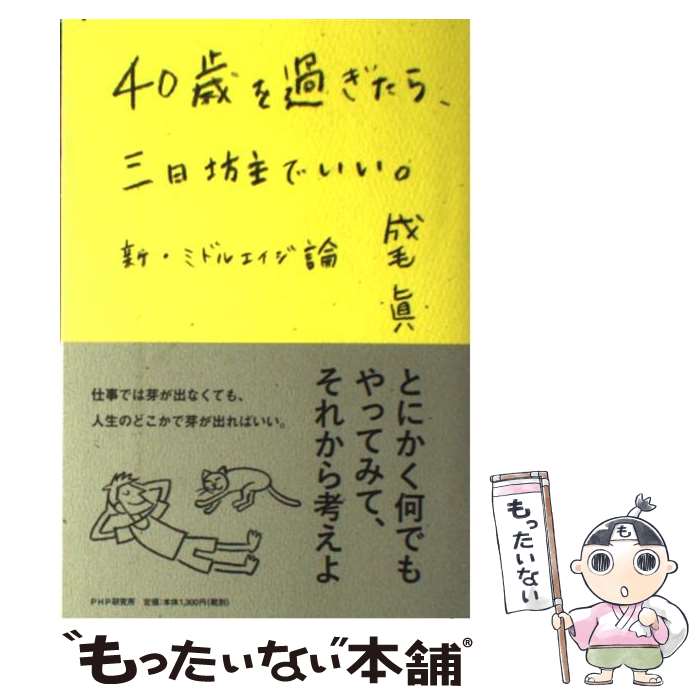 40歳を過ぎたら、
三日坊主でいい。
新・ミドルエイジ論
成毛眞
とにかく何でも
やってみて、
それから考えよ
仕事では芽が出なくても、
人生のどこかで芽が出ればいい。
PHP研究所 定価:本体1,300円(税別)
もったいない
も
"もったいない"本舗®